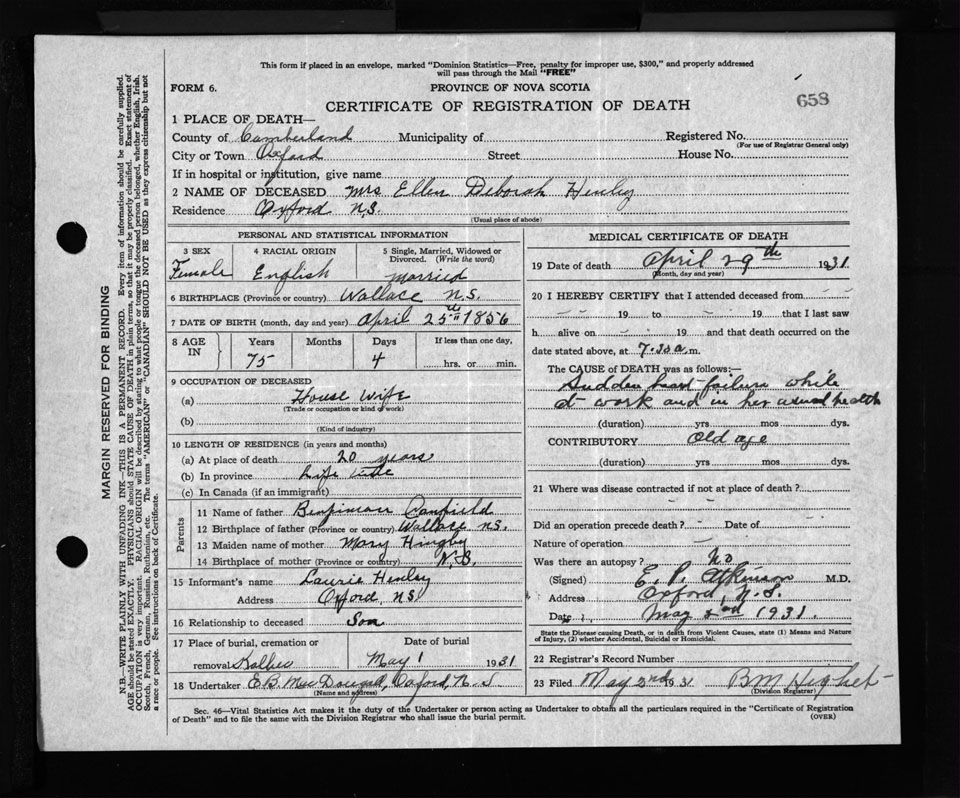 This form if placed in an envelope, marked "Dominion Statistics—Free, penalty for improper use, $300," and properly addressed
will pass through the Mail "FREE"
FORM 6.
PROVINCE OF NOVA SCOTIA
658
CERTIFICATE OF REGISTRATION OF DEATH
1 PLACE OF DEATH—
County of Cumberland Municipality of Registered No.
(For use of Registrar General only)
City or Town Oxford Street House No.
If in hospital or institution, give name
2 NAME OF DECEASED Mrs Ellen Deborah Henley
Residence Oxford N.S.
(Usual place of abode)
PERSONAL AND STATISTICAL INFORMATION
3 SEX 4 RACIAL ORIGIN 5 Single, Married, Widowed or
Divorced. (Write the word)
Female English Married
6 BIRTHPLACE (Province or country) Wallace N.S.
7 DATE OF BIRTH (month, day and year) April 25th 1856
8 AGE IN Years Months Days If less than one day,
75 4 hrs. or min.
9 OCCUPATION OF DECEASED
(a) House Wife
(Trade or occupation or kind of work)
(b)
(Kind of industry)
10 LENGTH OF RESIDENCE (in years and months)
(a) At place of death 20 years
(b) In province Life time
(c) In Canada (if an immigrant)
Parents
11 Name of father Benjiman Canfield
12 Birthplace of father (Province or country) Wallace N.S.
13 Maiden name of mother Mary
14 Birthplace of mother (Province or country) N.S.
15 Informant's name Laurie Henley
Address Oxford, N.S.
16 Relationship to deceased Son
17 Place of burial, cremation or Date of burial
removal May 1 1931
18 Undertaker E.B. MacDougal, Oxford, N.S
(Name and address)
MEDICAL CERTIFICATE OF DEATH
19 Date of death April 29th 1931
(Month, day and year)
20 I HEREBY CERTIFY that I attended deceased from
19 to 19 that I last saw
h alive on 19 and that death occurred on
date stated above, at 7.30 a.m.
The CAUSE of DEATH was as follows:—
Sudden heart failure while
at work and in her usual health
(duration) yrs mos dys.
CONTRIBUTORY Old age
(duration) yrs mos. dys.
21 Where was disease contracted if not at place of death?
Did an operation precede death? Date of
Nature of operation
Was there an autopsy? No
(Signed) E. P. Atkinson M.D.
Address Oxford, N.S.
Date May 2nd 1931.
State the Disease causing Death, or in death from Violent Causes, state (1) Means and Nature
of Injury, (2) whether Accidental, Suicidal or Homicidal.
22 Registrar's Record Number
23 Filed May 2nd 1931 B M
(Division Registrar)
Sec. 46—Vital Statistics Act makes it the duty of the Undertaker or person acting as Undertaker to obtain all the particulars required in the "Certificate of Registration
of Death" and to file the same with the Division Registrar who shall issue the burial permit.
(OVER)
MARGIN RESERVED FOR BINDING
N.B.—WRITE PLAINLY WITH UNFADING INK—THIS IS A PERMANENT RECORD. Every item of information should be carefully supplied.
AGE should be stated EXACTLY. PHYSICIANS should STATE CAUSE OF DEATH in plain terms, so that it may be properly classified. Exact statement of
OCCUPATION is very important. RACIAL ORIGIN will be described by stating to what people or tongue the deceased person belonged, whether English, Irish,
Scotch, French, German, Russian, Ruthenian, etc. The terms "AMERICAN" or "CANADIAN" SHOULD NOT BE USED as they express citizenship but not
a race or people. See instructions on back of Certificate.